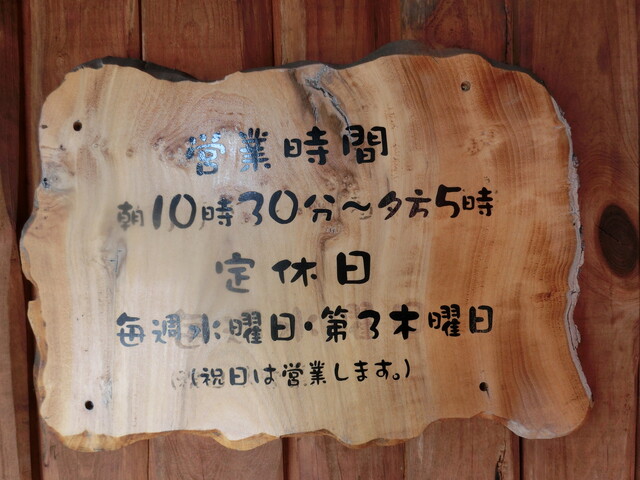 営業時間
朝10時30分〜夕方5時
定休日
毎週水曜日・第3木曜日
(祝日は営業します。)